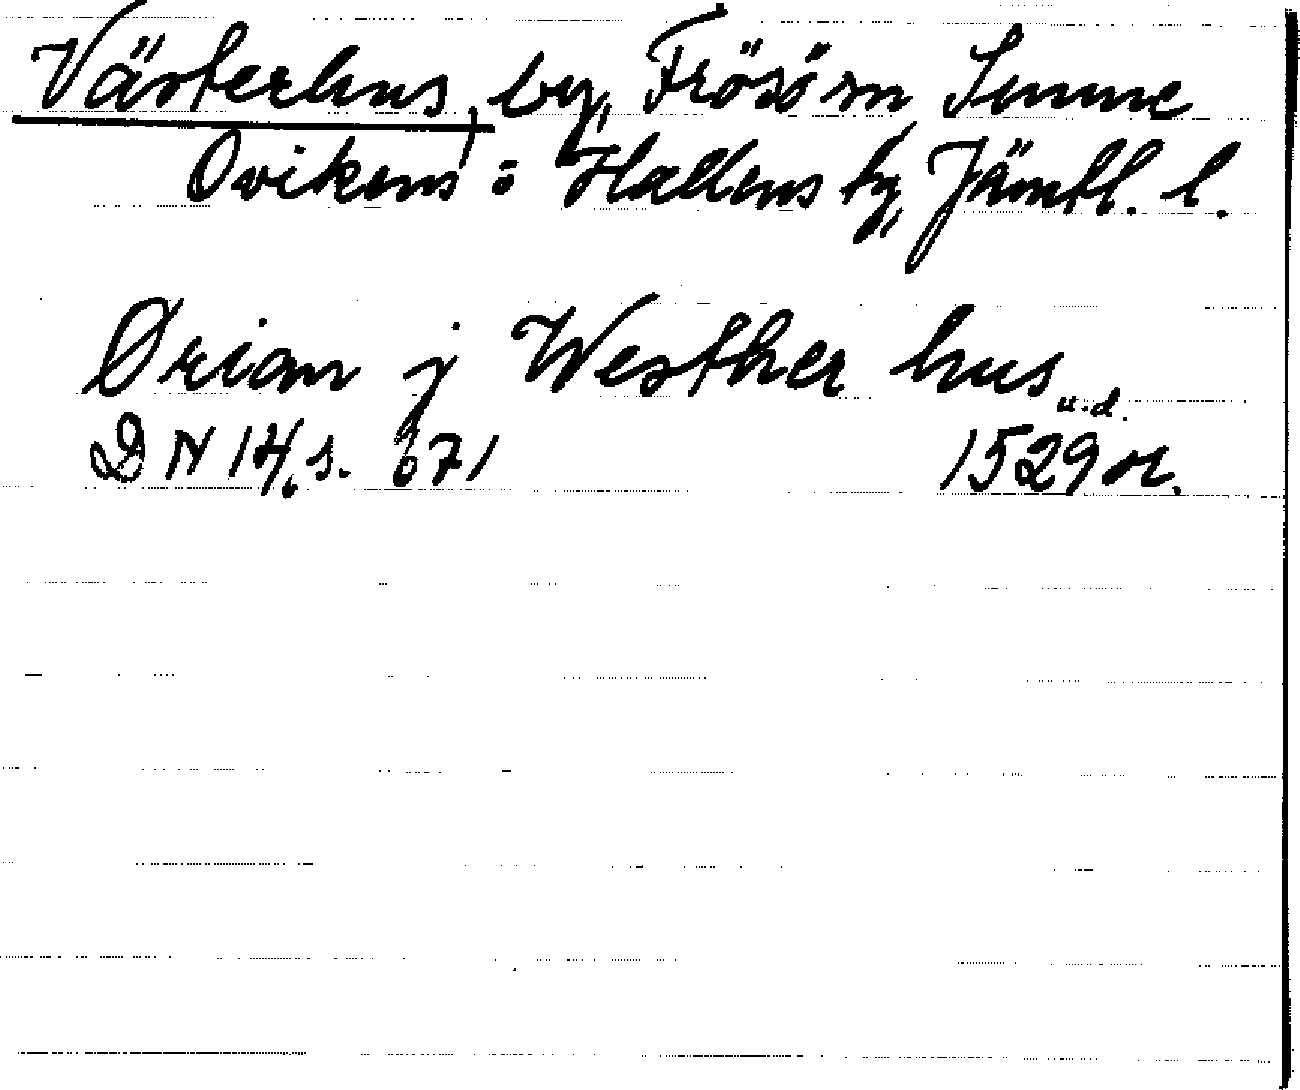 Västerhus, by, Frösö sn Sunne
Ovikens o Hallens tg, Jämtl. l.
Ørian j Westher hus u.d.
DN 14, s. 671 1529 or.